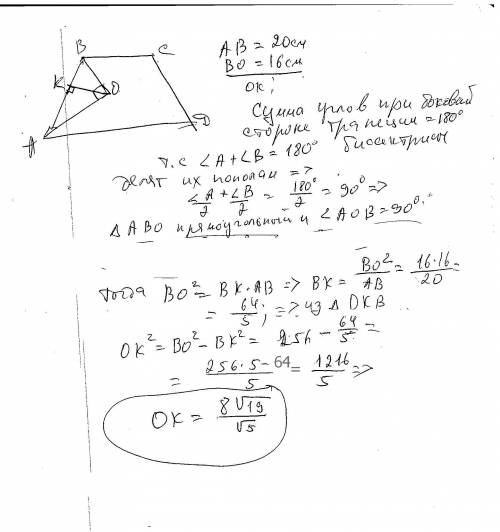 B C
K O
A D
AB = 20см
BO = 16см
OK;
Сумма углов при боковой
стороне трапеции = 180°
т.с ∠A + ∠B = 180° биссектрисы
делят их пополам =>
∠A/2 + ∠B/2 = 180°/2 = 90° =>
ΔABO прямоугольный и ∠AOB = 90°.
тогда BO² = BK·AB => BK = BO²/AB = 16·16/20 =
= 64/5; => из Δ OKB
OK² = BO² - BK² = 256 - 64/5 =
= 256·5-64/5 = 1216/5 =>
OK = 8√19/√5